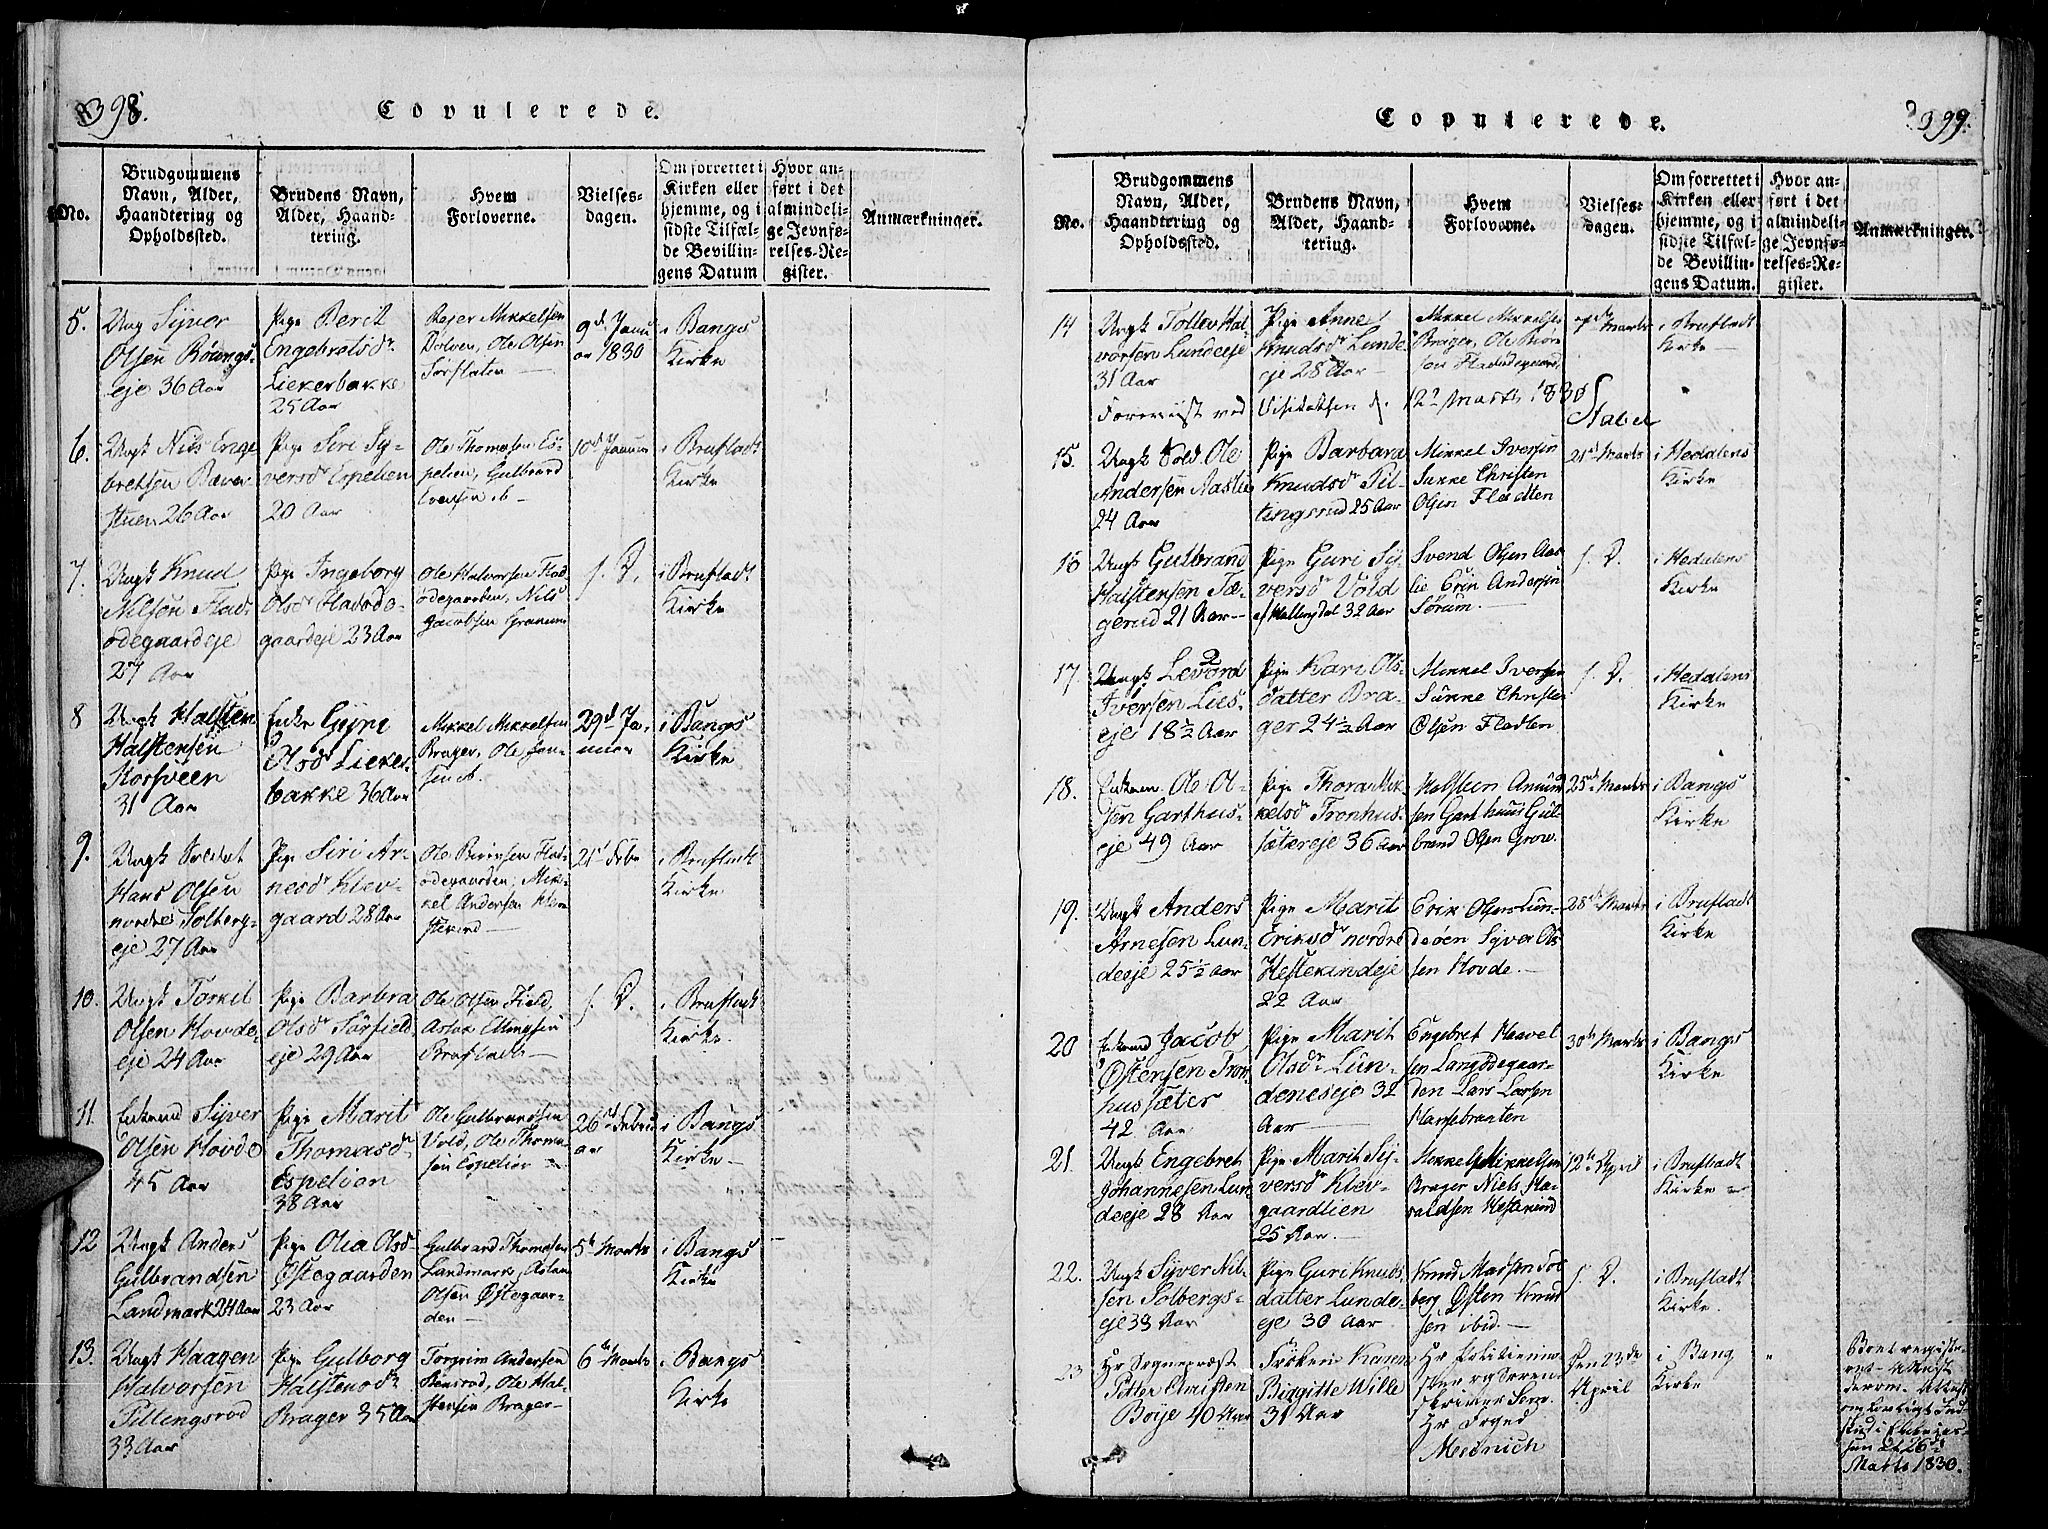 398.
Copulerede.
No.
Brudgommens
Navn, Alder,
Haandtering og
Opholdssted.
Brudens Navn,
Alder, Haand-
tering.
Hvem
Forloverne.
Vielses-
dagen.
Om forrettet i
Kirken eller
hjemme, og i
sidste Tilfæl-
de Bevillin-
gens Datum
Hvor an-
ført i det
almindeli-
ge Jevnfø-
relses-Re-
gister.
Anmærkninger.
5.
Ung Syver
Olsen Röungs-
eje 36 Aar
Pige Berit
Engebretsdr
Liekerbakke
25 Aar
Mikkelsen
Dølven, Ole Olsen
9d Janu
ar 1830
i Bangs
Kirke
6.
Ungk Nils Enge
bretsen Bæver
stuen 26 Aar
Pige Siri Sy-
versdr Espelien
20 Aar
Ole Thomesen Es-
pelien, Gulbrand
Iversen ib
10d Januar
i Brufladt
Kirke
7.
Ungk Knud
Nilsen Flads-
ödegaardeje
27 Aar
Pige Ingeborg
Olsdr Fladsdo-
gaardeje 23 Aar
Ole Halvorsen Flad
ödegaarden, Nils
Jacobsen Granum
s. D.
i Brufladt
Kirke
8
Ungk Halsten
Halstensen
Korsveen
31 Aar
Enke Guri
Olsdr Liekes-
bakke 36 Aar
Mikkel Mikkelsen
Brager, Ole Jen-
sen ib.
29d Ja-
nuar
i Bangs
Kirke
9.
Ungk Soldat
Hans Olsen
nordre Solberg-
eje 27 Aar
Pige Siri Ar-
nesdr Klev-
gaard 28 Aar
Ole Flad-
ödegaarden, Mik-
kel Andersen
21d Febr
i Brufladt
Kirke
10.
Ungk Torkil
Olsen Hovde-
eje 24 Aar
Pige Barbra
Olsdr Sörfield
eje 29 Aar
Ole Olsen Field,
Aslak Ellingsen
Brufladt
s. D.
i Brufladt
Kirke.
11.
Enkemd Syver
Olsen Hovde
45 Aar
Pige Marit
Thomasdr
Espelien
38 Aar
Ole Gulbrandsen
Vold, Ole Thoma-
sen Espelien
26d Febru
ar
i Bangs
Kirke
12
Ungk Anders
Gulbrandsen
Landmark 24 Aar
Pige Olia Olsdr
Østegaarden
23 Aar
Gulbrand Thomesen
Landmark, Aslak
Olsen Østegaar-
den
5te Marts
i Bangs
Kirke
13.
Ungk Haagen
Halvorsen
Pillingsrod
33 Aar
Pige Gulborg
Halstensdr
Brager 35 Aar
Torgrim Andersen
Bensrod, Ole Hal-
stensen Brager
6te Marts
i Bangs
Kirke
Copulerede.
399.
No.
Brudgommens
Navn, Alder,
Haandtering og
Opholdssted.
Brudens Navn,
Alder, Haand-
tering.
Hvem
Forloverne.
Vielses-
dagen.
Om forrettet i
Kirken eller
hjemme, og i
sidste Tilfæl-
de Bevillin-
gens Datum.
Hvor an-
ført i det
almindeli-
ge Jevnfø-
relses-Re-
gister.
Anmærkninger.
14
Ungk Tollev Hal
vorsen Lundeeje
31 Aar
Pige Anne
Knudsdr Lunde-
eje 28 Aar
Mikkel Mikkelsen
Brager, Ole Thor-
sen Fladsdegaard
7de Marts
i Bruflad
Kirke
Foreviist ved Visitatsen d. 12te Marts 1830
Stabel
15.
Ungk Sold. Ole
Andersen Aaslie
24 Aar
Pige Barbara
Knudsdr Pil-
lingsrud 25 Aar
Mikkel Iversen
Sukke Christen
Olsen Fladten
21de Marts
i Hedalens
Kirke
16
Ungk Gulbrand
Halstensen Tæ-
gerud 21 Aar
Pige Guri Sy-
versdr Vold
af Hallingdal 32 Aar
Svend Olsen Aas-
lie Erik Andersen
Sørum.
s. D.
i Hedalens
Kirke
17.
Ungk Levord
Iversen Lies-
eje 18½ Aar
Pige Kari Ols-
datter Bra-
ger 24½ Aar
Mikkel Iversen
Sukke Christen
Olsen Fladten
s. D.
i Hedalens
Kirke
18.
Enkem. Ole Ol-
sen Garthus-
eje 49 Aar
Pige Thora Mik-
kelsdr Tronhus-
sætereje 36 Aar
Halsteen Amund
sen Garthuus Gul-
brand Olsen Grow.
25de Marts
i Bangs
Kirke
19.
Ungk Anders
Arnesen Lun-
deeje 25½ Aar
Pige Marit
Eriksdr nordre
Hestekindeje
22 Aar
Erik Olsen Lun-
deöen Syver Ol-
sen Hovde.
28de Marts
i Bruflad
Kirke
20
Enkemd Jacob
Østensen Tron-
hussæter
42 Aar
Pige Marit
Olsdr Lun-
deneseje 32
Aar
Engebret Haavel
sen Langödegaar-
den Lars Larsen
Hansebraaten
30te Marts
i Bangs
Kirke
21.
Ungk Engebret
Johannesen Lun-
deeje 28 Aar
Pige Marit Sy-
versdr Klev-
gaardlien
25 Aar.
Mikkel Mikkelsen
Brager Niels Ha-
raldsen Hestekind
12te April
i Bruflad
Kirke
22.
Ungk Syver Nil-
sen Solbergs-
eje 33 Aar
Pige Guri Knuds
datter Lunde-
eje 30 Aar
Knud Madsen Sol
berg Østen Knud
sen ibid.
s. D.
i Bruflad
Kirke.
23
Hr Sognepræst
Petter Christen
Boije 40 Aar
Frøken Karen
Birgitte Wille
31 Aar
Hr
skriver
Hr Foged
Meinich
Den 23de
April
i Bang
Kirke
"
Matts 1830.